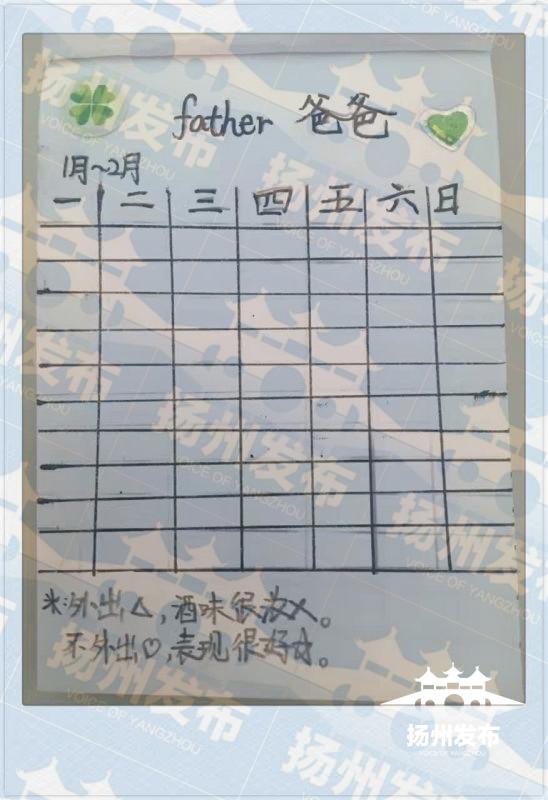 father 爸爸
1月~2月
一 二 三 四 五 六 日
※:外出△,酒味很浓×。
不外出♡,表现很好☆。
扬州发布
VOICE OF YANGZHOU
扬州发布